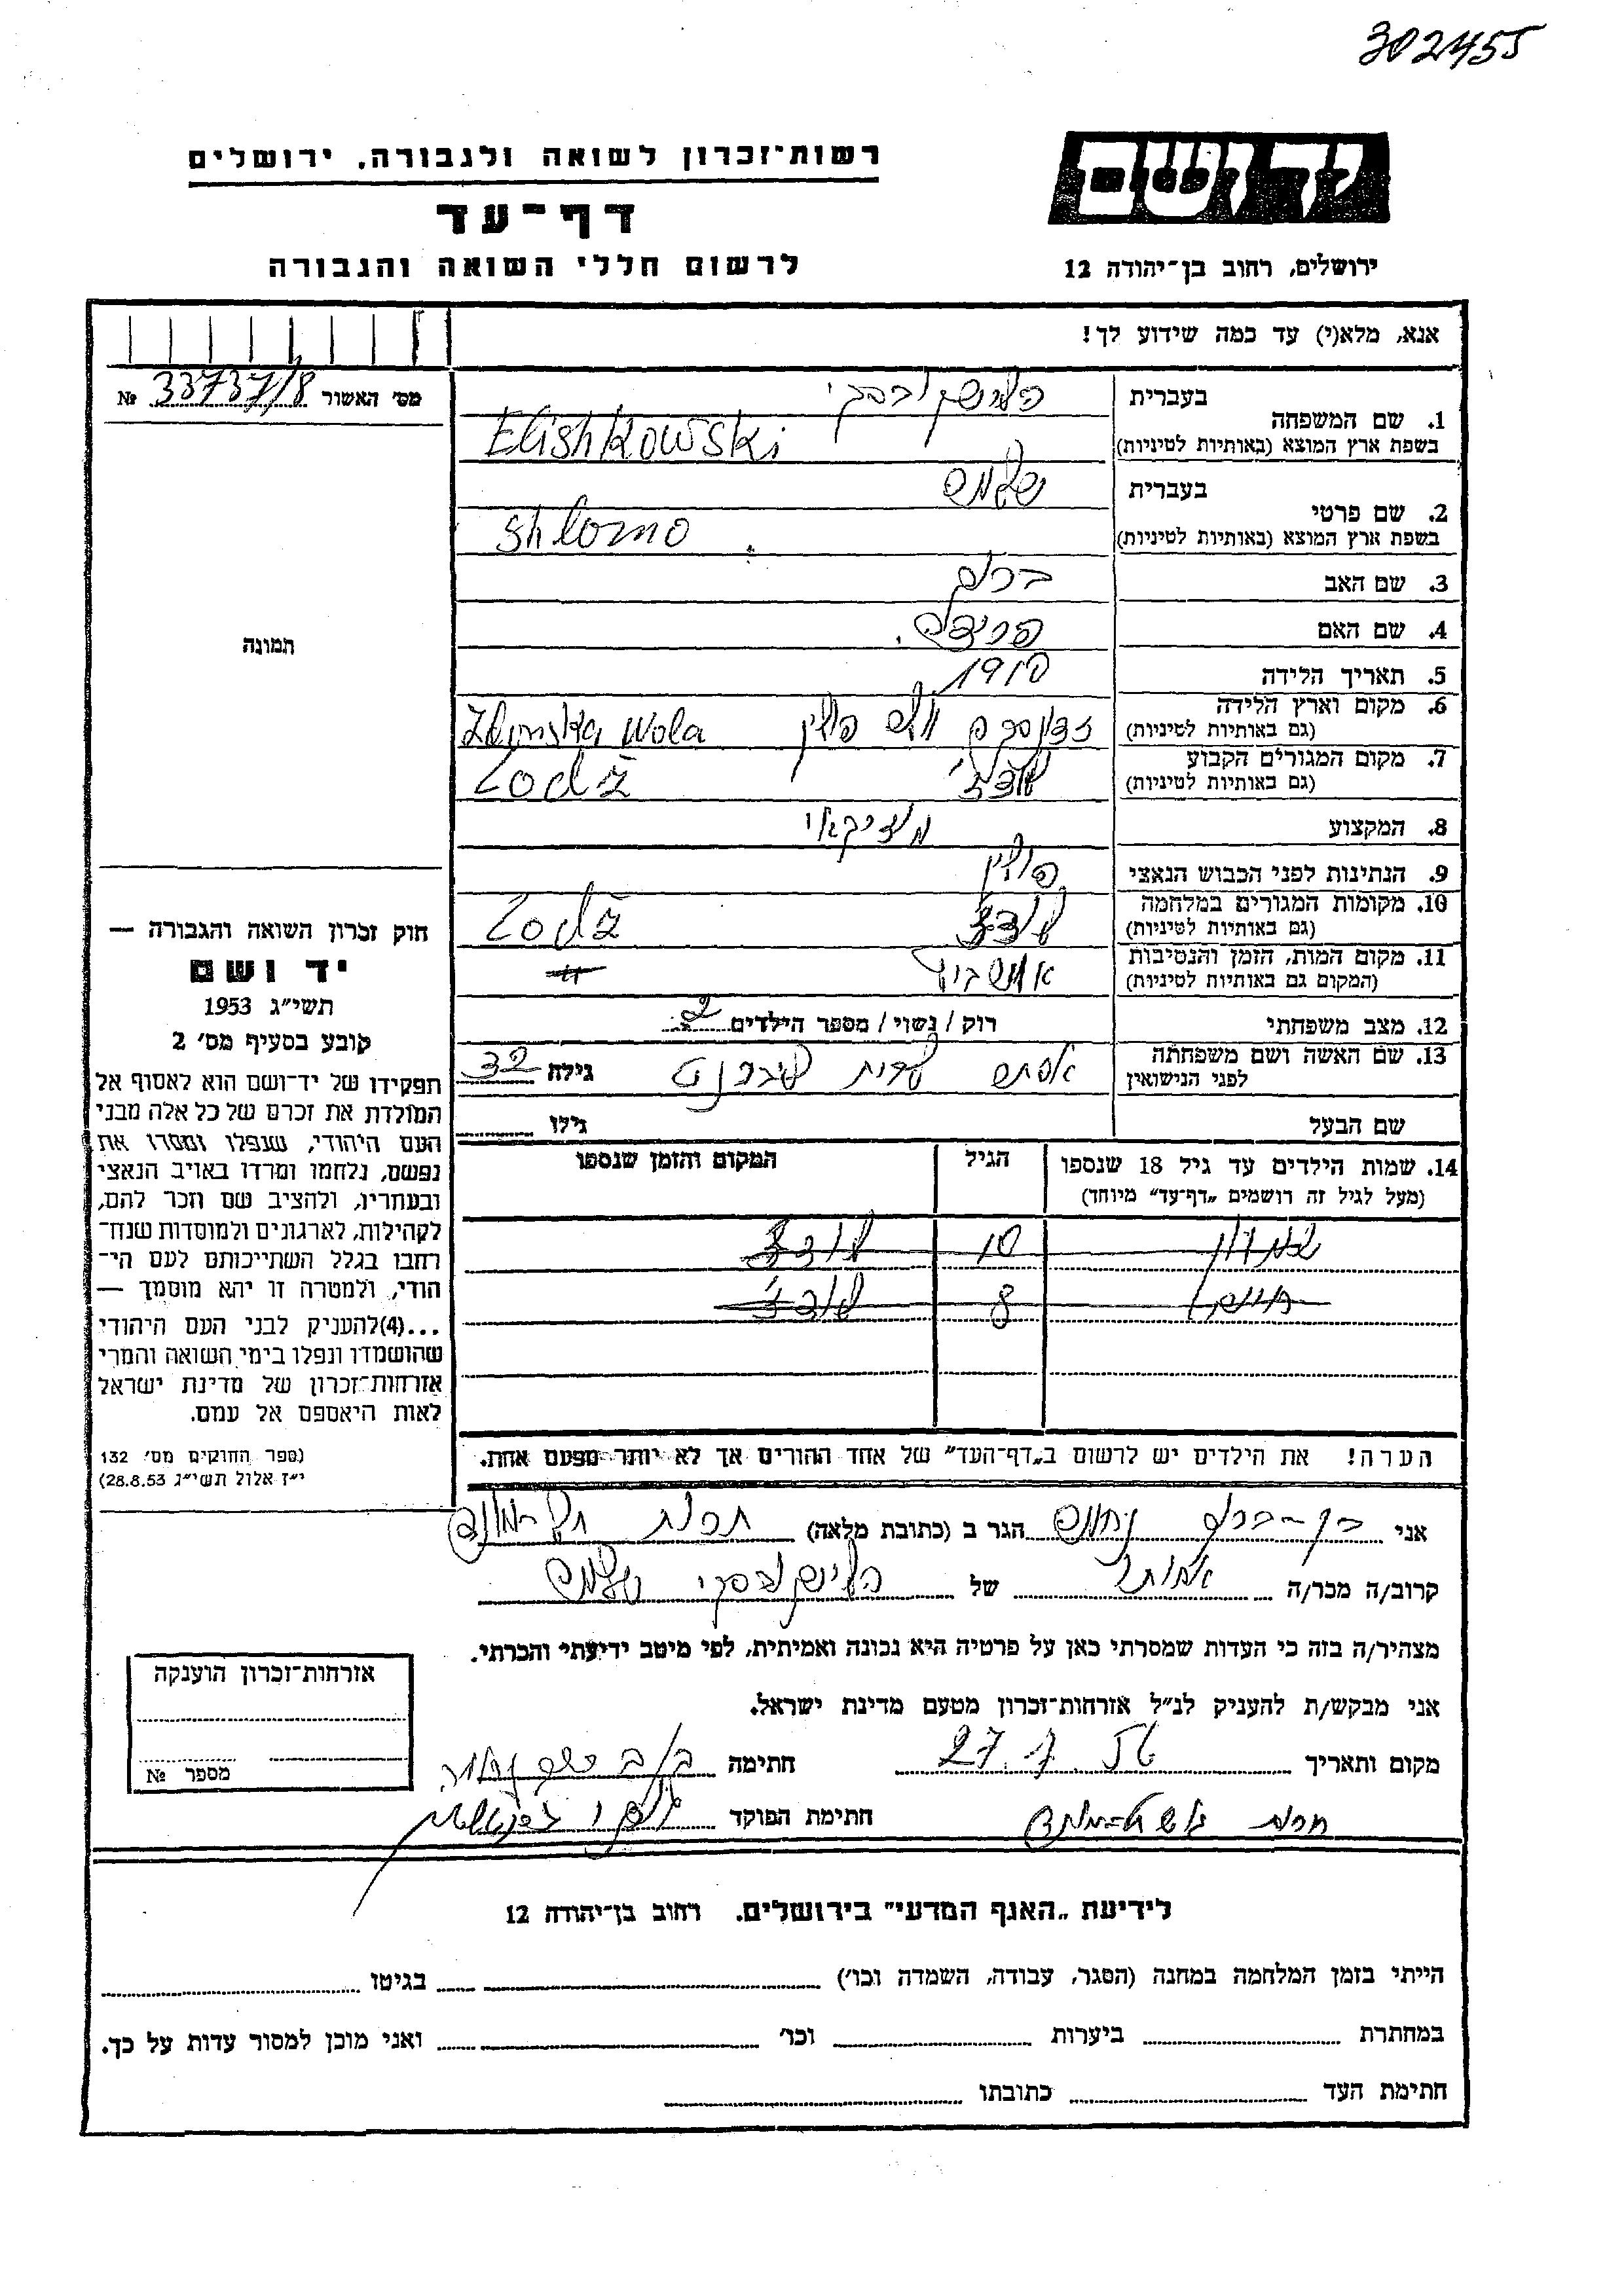 302455
רשות־זכרון לשואה ולגבורה. ירושלים
דף־עד
לרשום חללי השואה והגבורה
יד ושם
ירושלים, רחוב בן־יהודה 12
אנא, מלא(י) עד כמה שידוע לך!
מס׳ האשור 33737/8 №
1. שם המשפחה
בעברית
בשפת ארץ המוצא (באותיות לטיניות) Elishkowski
2. שם פרטי
בעברית שלמה
בשפת ארץ המוצא (באותיות לטיניות) Shlomo
3. שם האב
4. שם האם
5. תאריך הלידה 1910
6. מקום וארץ הלידה
(גם באותיות לטיניות) פולין Zdunska Wola
7. מקום המגורים הקבוע
(גם באותיות לטיניות) לודז׳ Lodz
8. המקצוע
9. הנתינות לפני הכבוש הנאצי פולין
10. מקומות המגורים במלחמה
(גם באותיות לטיניות) לודז Lodz
11. מקום המות, הזמן והנסיבות
(המקום גם באותיות לטיניות) אושביץ
12. מצב משפחתי רוק / נשוי / מספר הילדים 2
13. שם האשה ושם משפחתה
לפני הנישואין אסתר גילה 32
שם הבעל גילו
14. שמות הילדים עד גיל 18 שנספו
(מעל לגיל זה רושמים „דף־עד״ מיוחד)
הגיל
המקום והזמן שנספו
10 לודז
8 לודז׳
הערה! את הילדים יש לרשום ב„דף־העד״ של אחד ההורים אך לא יותר מפעם אחת.
תמונה
חוק זכרון השואה והגבורה —
יד ושם
תשי״ג 1953
קובע בסעיף מס׳ 2
תפקידו של יד־ושם הוא לאסוף אל
המולדת את זכרם של כל אלה מבני
העם היהודי, שנפלו ומסרו את
נפשם, נלחמו ומרדו באויב הנאצי
ובעוזריו, ולהציב שם וזכר להם,
לקהילות, לארגונים ולמוסדות שנח־
רחבו בגלל השתייכותם לעם הי־
הודי, ולמטרה זו יהא מוסמך —
...(4)להעניק לבני העם היהודי
שהושמדו ונפלו בימי השואה והמרי
אזרחות־זכרון של מדינת ישראל
לאות היאספם אל עמם.
(ספר החוקים מס׳ 132
י״ז אלול תשי״ג 28.8.53)
אני נחום הגר ב (כתובת מלאה)
קרוב/ה מכר/ה של שלמה
מצהיר/ה בזה כי העדות שמסרתי כאן על פרטיה היא נכונה ואמיתית, לפי מיטב ידיעתי והכרתי.
אני מבקש/ת להעניק לנ״ל אזרחות־זכרון מטעם מדינת ישראל.
מקום ותאריך 27.7.56 חתימה
חתימת הפוקד
אזרחות־זכרון הוענקה
מספר №
לידיעת „האגף המדעי״ בירושלים. רחוב בן־יהודה 12
הייתי בזמן המלחמה במחנה (הסגר, עבודה, השמדה וכו׳) בגיטו
במחתרת ביערות וכו׳ ואני מוכן למסור עדות על כך.
חתימת העד כתובתו